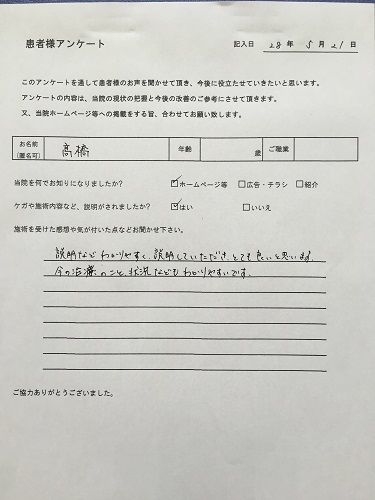 患者様アンケート
記入日 28年 5月 21日
このアンケートを通して患者様のお声を聞かせて頂き、今後に役立たせていきたいと思います。
アンケートの内容は、当院の現状の把握と今後の改善のご参考にさせて頂きます。
又、当院ホームページ等への掲載をする旨、合わせてお願い致します。
お名前(匿名可) 髙橋 年齢 歳 ご職業
当院を何でお知りになりましたか? ☑ホームページ等 □広告・チラシ □紹介
ケガや施術内容など、説明がされましたか? ☑はい □いいえ
施術を受けた感想や気が付いた点などお聞かせ下さい。
説明などわかりやすく、説明していただき、とても良いと思います。
今の治療のこと、状況などもわかりやすいです。
ご協力ありがとうございました。